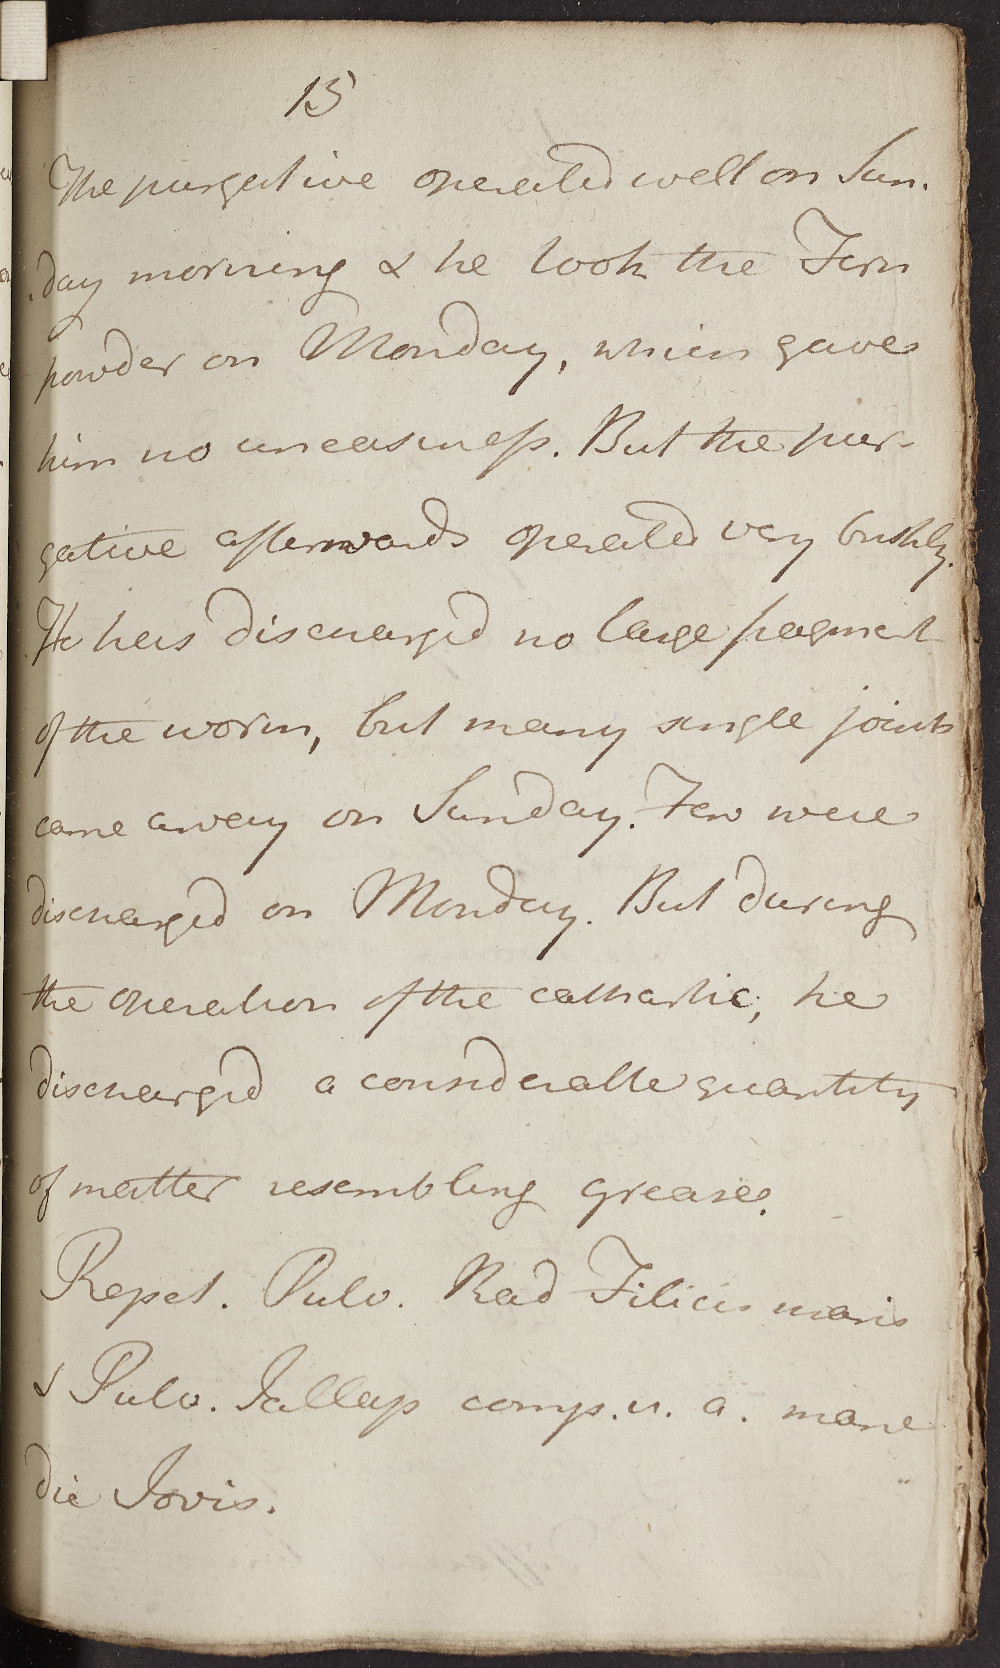 15
The purgative operated well on Sun.
.day morning & he took the Fern
powder on Monday, which gave
him no uneasiness. But the pur-
gative afterwards operated very briskly.
He has discharged no large fragment
of the worm, but many single joints
came away on Sunday. Few were
discharged on Monday. But during
the operation of the cathartic, he
discharged a considerable quantity
of matter resembling grease.
Repet. Pulv. Rad Filicis maris
& Pulv. Jallap comp. u. a. mane
die Jovis.